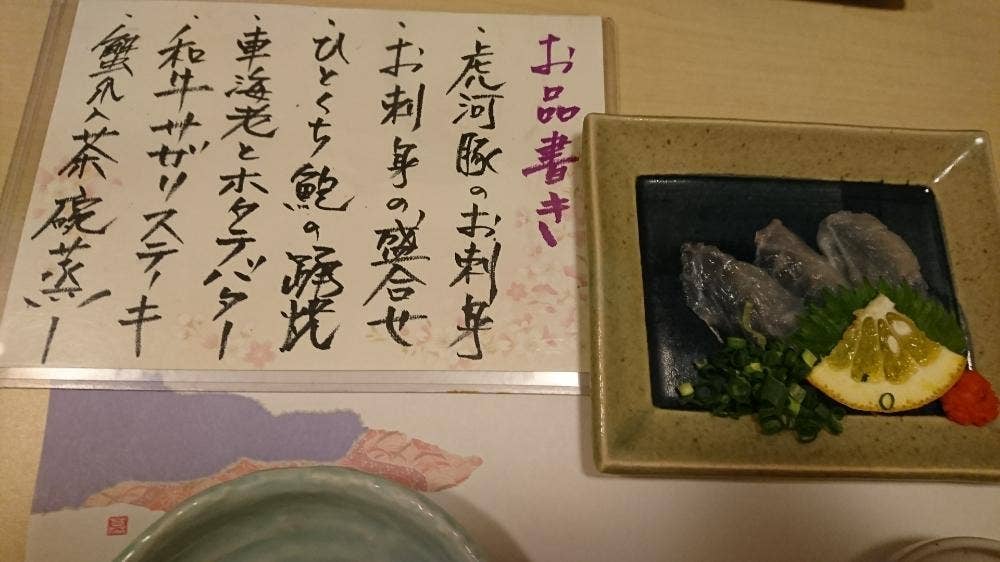 お品書き
・虎河豚のお刺身
・お刺身の盛合せ
・ひとくち鮑の踊焼
・車海老とホタテバター
・和牛サザリステーキ
・蟹爪入茶碗蒸シ